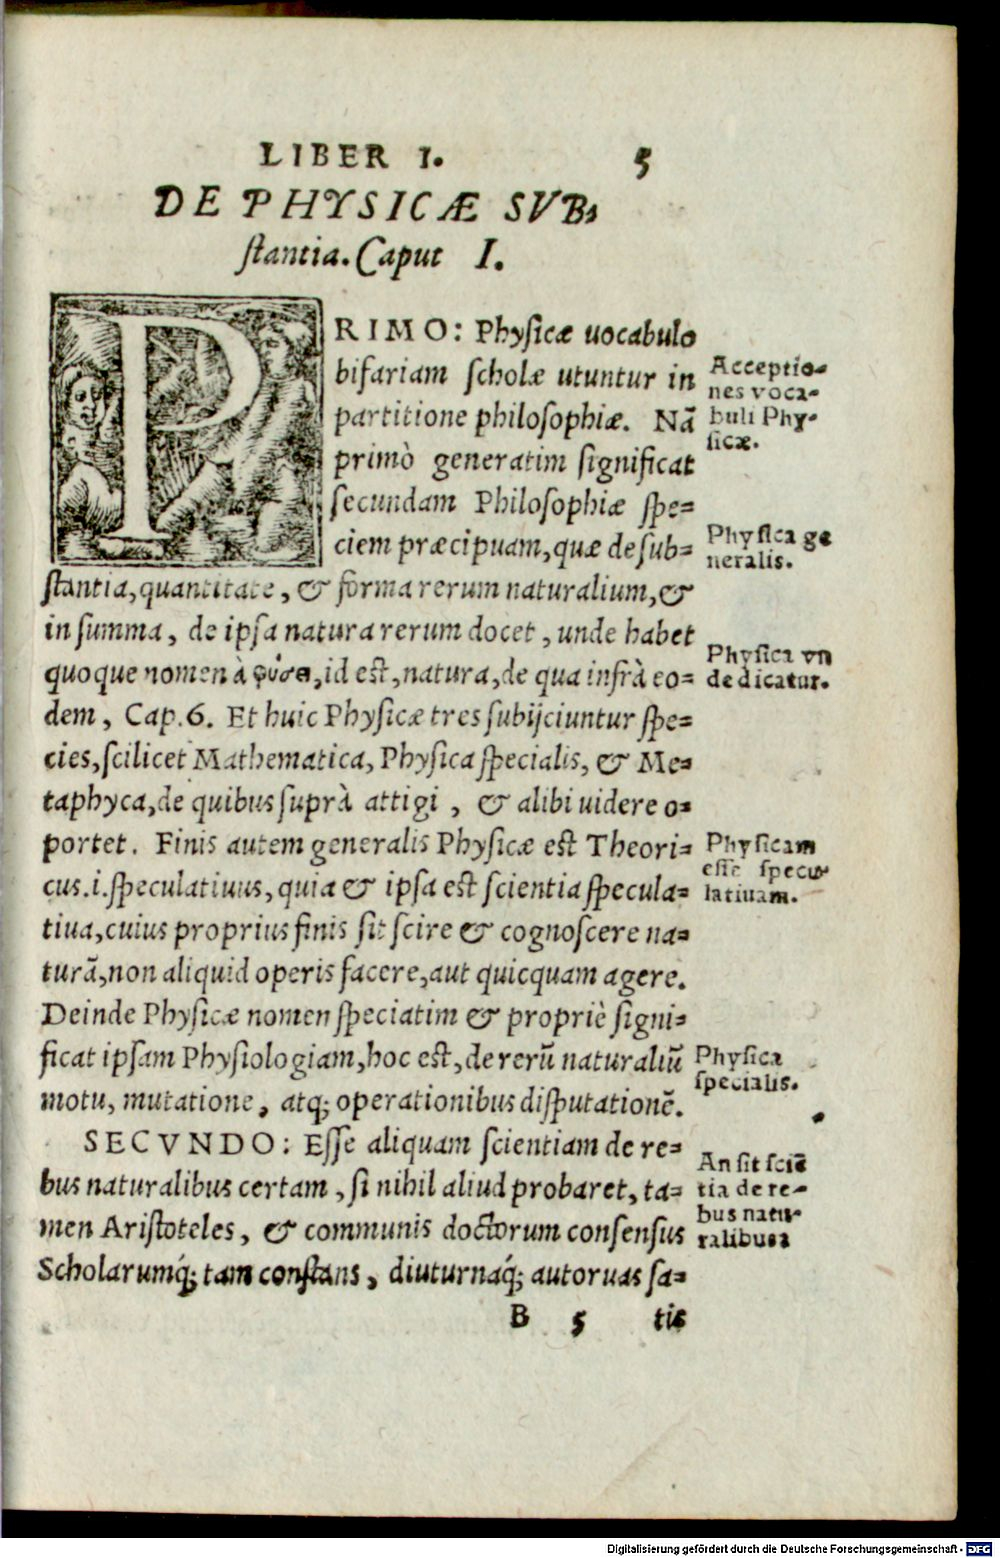 LIBER I. 5
DE PHYSICÆ SVB-
ſtantia. Caput I.
PRIMO: Phyſicæ uocabulo
bifariam ſcholæ utuntur in
partitione philoſophiæ. Nã
primò generatim ſignificat
ſecundam Philoſophiæ ſpe=
ciem præcipuam, quæ de ſub=
ſtantia, quantitate, & forma rerum naturalium, &
in ſumma, de ipſa natura rerum docet, unde habet
quoque nomen à φύσει, id eſt, natura, de qua infrà eo=
dem, Cap. 6. Et huic Phyſicæ tres ſubijciuntur ſpe=
cies, ſcilicet Mathematica, Phyſica ſpecialis, & Me=
taphyca, de quibus ſuprà attigi, & alibi uidere o=
portet. Finis autem generalis Phyſicæ eſt Theori=
cus .i. ſpeculatiuus, quia & ipſa eſt ſcientia ſpecula=
tiua, cuius proprius finis ſit ſcire & cognoſcere na=
turã, non aliquid operis facere, aut quicquam agere.
Deinde Phyſicæ nomen ſpeciatim & propriè ſigni=
ficat ipſam Phyſiologiam, hoc eſt, de rerũ naturaliũ
motu, mutatione, atq; operationibus diſputationẽ.
SECVNDO: Eſſe aliquam ſcientiam de re=
bus naturalibus certam, ſi nihil aliud probaret, ta=
men Ariſtoteles, & communis doctorum conſenſus
Scholarumq́; tam conſtans, diuturnaq́; autoritas ſa=
B 5 tis
Acceptio-
nes voca-
buli Phy-
ſicæ.
Phyſica ge
neralis.
Phyſica vn
de dicatur.
Phyſicam
eſſe ſpecu-
latiuam.
Phyſica
ſpecialis.
An ſit ſciẽ
tia de re-
bus natu-
ralibus
Digitalisierung gefördert durch die Deutsche Forschungsgemeinschaft - DFG